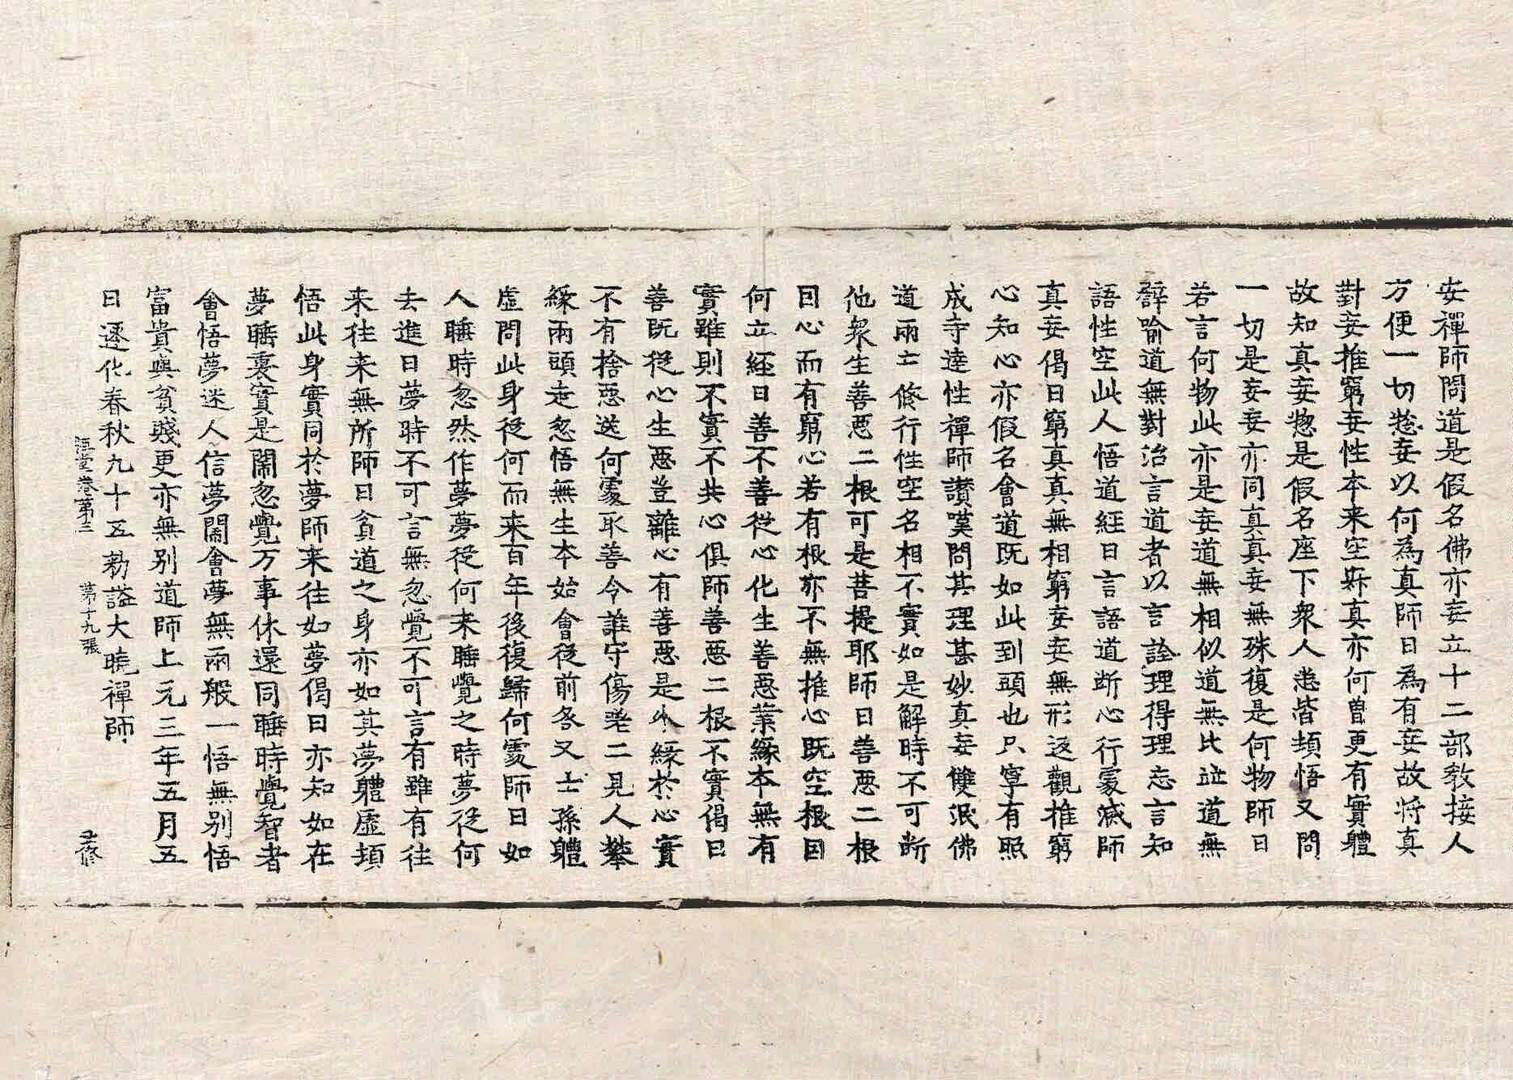 安禪師問道是假名佛亦妄立十二部教接人
方便一切惣妄以何為真師曰為有妄故將真
對妄推窮妄性本来空寂真亦何曾更有實體
故知真妄惣是假名座下衆人悉皆頓悟又問
一切是妄妄亦同真真妄無殊復是何物師曰
若言何物此亦是妄道無相似道無比並道無
譬喻道無對治言道者以言詮理得理忘言知
語性空此人悟道経曰言語道断心行䖏滅師
真妄偈曰窮真真無相窮妄妄無形返觀推窮
心知心亦假名會道既如此到頭也只寧有照
成寺達性禪師讃嘆問其理甚妙真妄雙泯佛
道兩亡俢行性空名相不實如是解時不可断
他衆生善惡二根可是菩提耶師曰善惡二根
因心而有窮心若有根亦不無推心既空根因
何立経曰善不善從心化生善惡業緣本無有
實雖則不實不共心俱師善惡二根不實偈曰
善既從心生惡豈離心有善惡是外緣於心實
不有捨惡送何䖏取善令誰守傷嗟二見人攀
緣兩頭走忽悟無生本始會從前咎又士孫體
虛問此身從何而来百年後復歸何䖏師曰如
人睡時忽然作夢夢從何来睡覺之時夢從何
去進曰夢時不可言無忽覺不可言有雖有往
来往来無所師曰貧道之身亦如其夢體虛頓
悟此身實同於夢師来往如夢偈曰亦知如在
夢睡裏實是閙忽覺万事休還同睡時覺智者
會悟夢迷人信夢閙會夢無兩般一悟無別悟
富貴與貧賤更亦無別道師上元三年五月五
日遷化春秋九十五勑謚大曉禪師
祖堂卷第三 第十九張 孟修